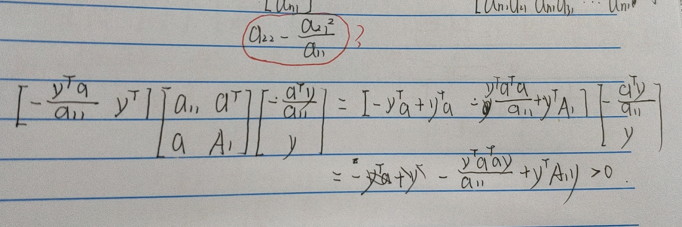 [a₁₁] [aₙ₁a₂₁ aₙ₁a₃₁ ... aₙ₁
a₂₂ - a₂₁²/a₁₁ ?
[-yᵀa/a₁₁ yᵀ] [a₁₁ aᵀ; a A₁] [-aᵀy/a₁₁; y] = [-yᵀa + yᵀa - yᵀaᵀa/a₁₁ + yᵀA₁] [-aᵀy/a₁₁; y]
= - yᵀaᵀay/a₁₁ + yᵀA₁y > 0.